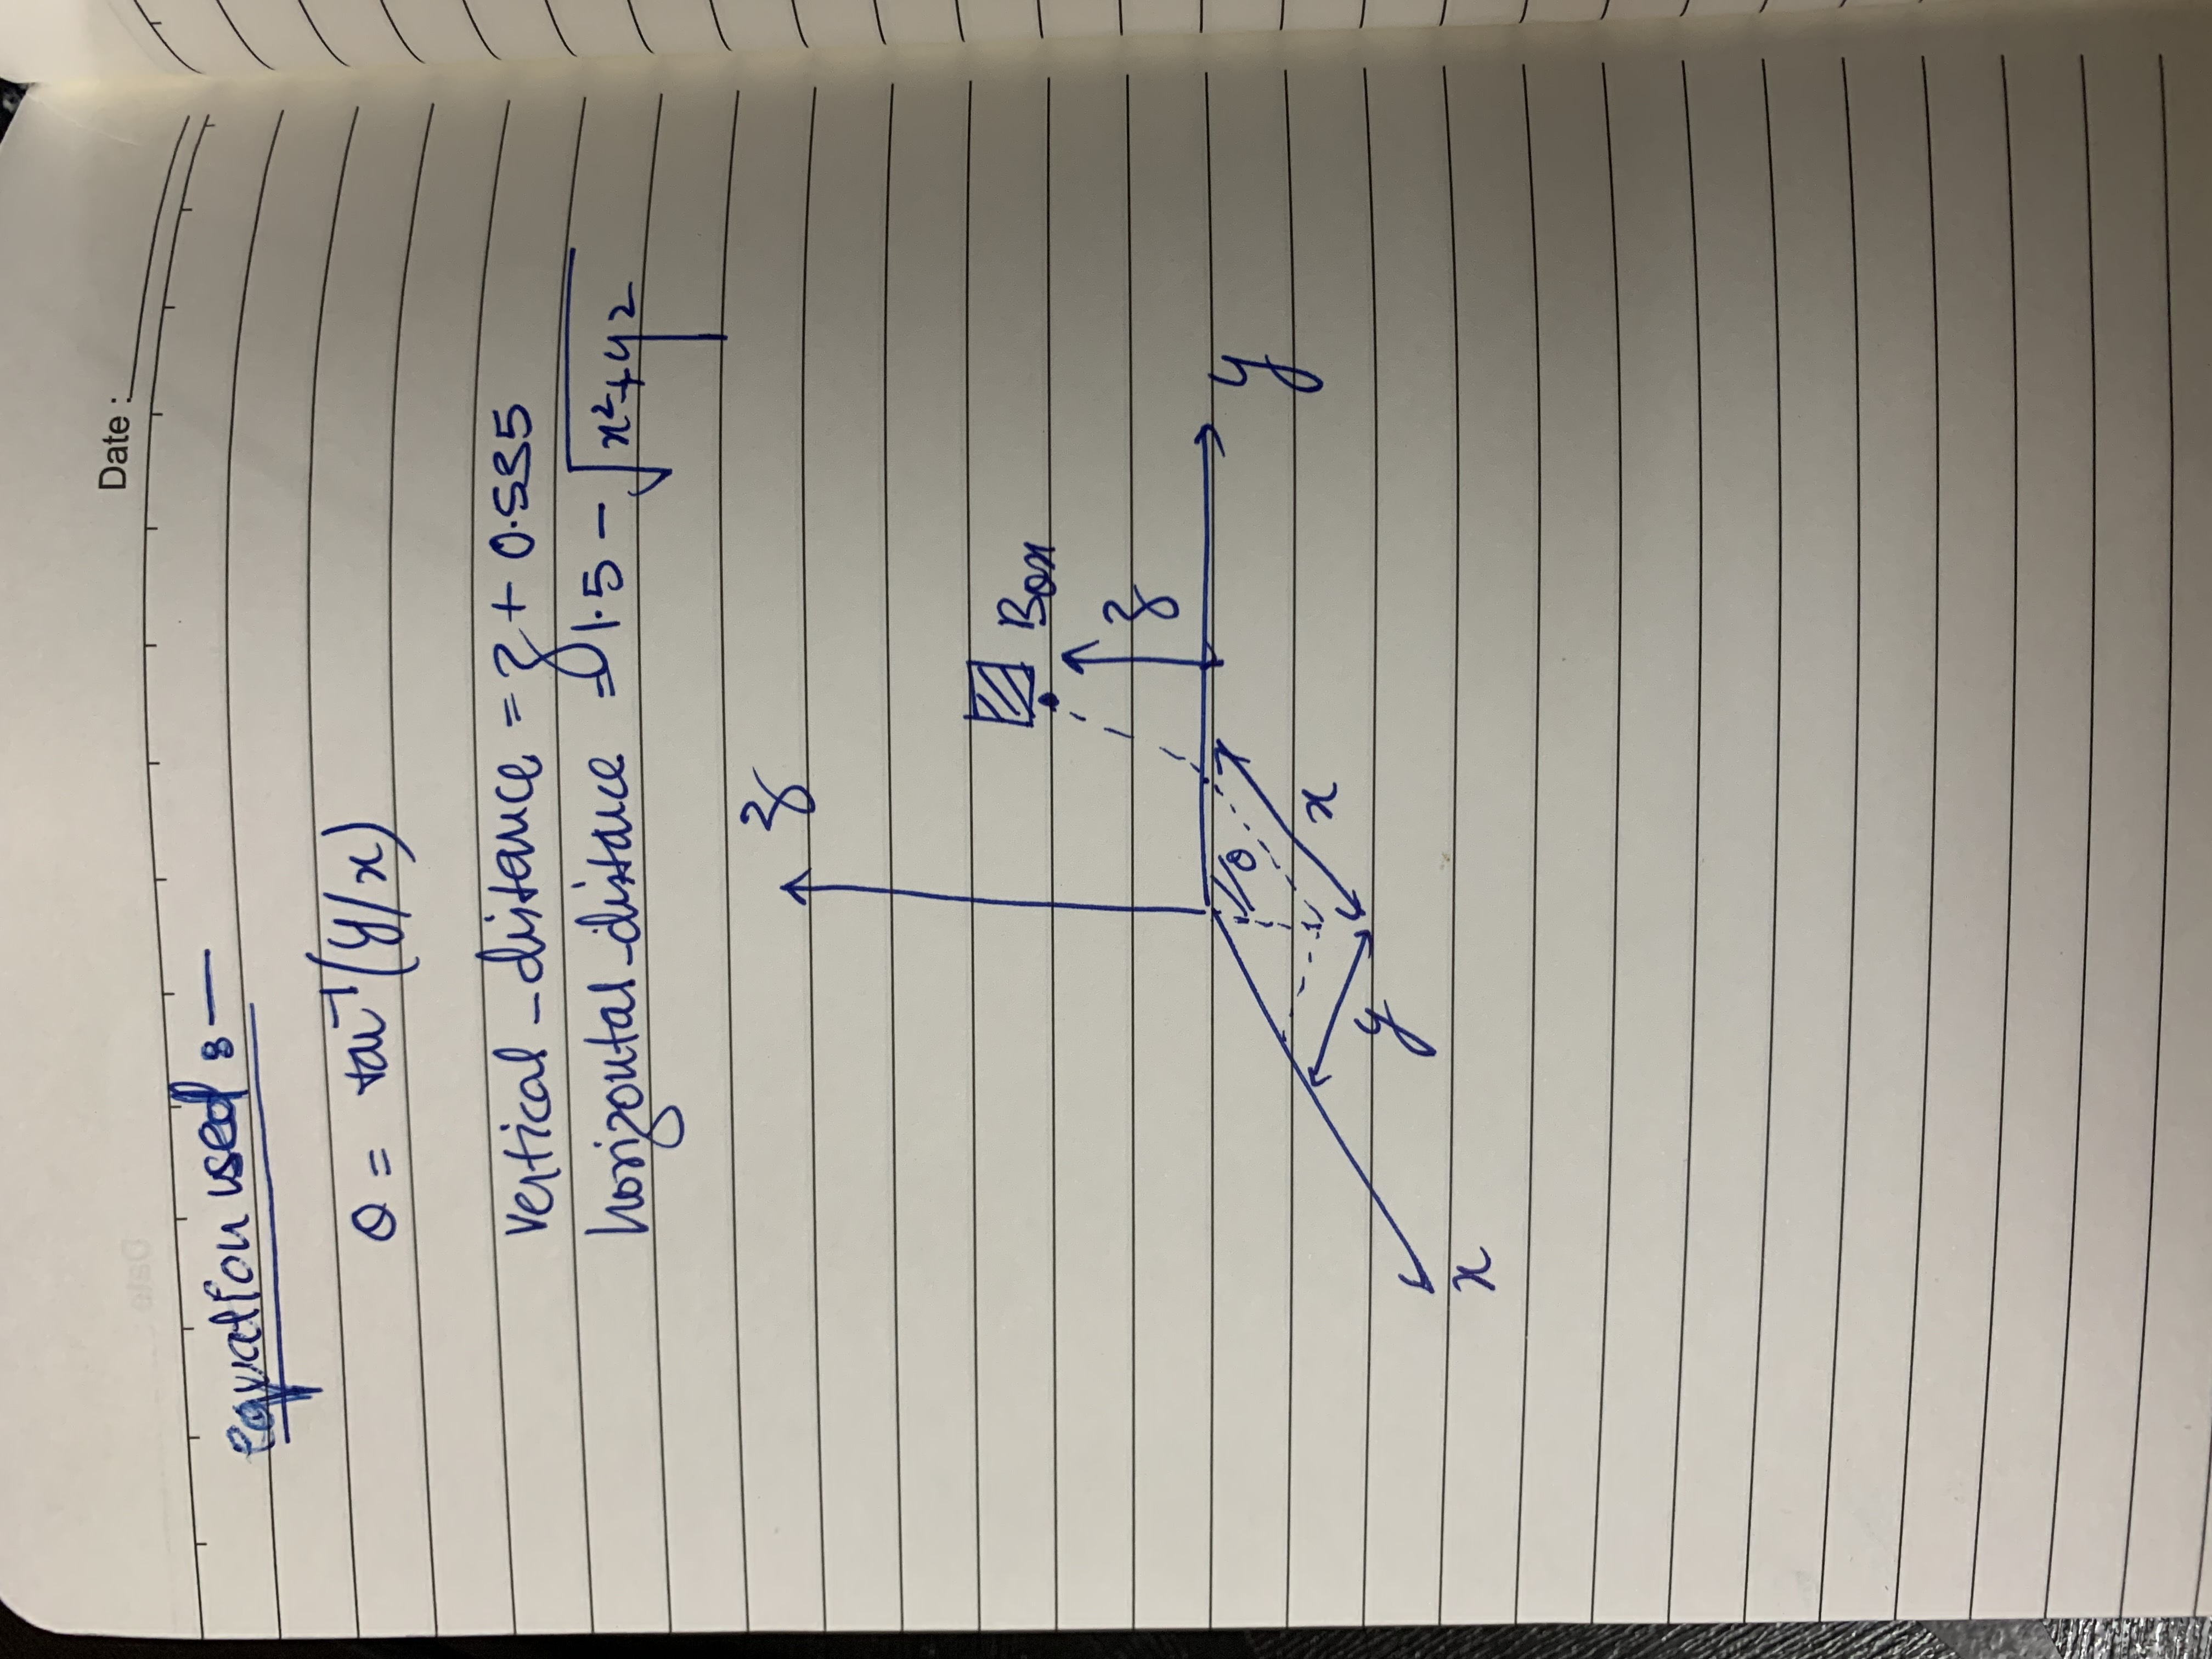 Date :
equation used :—
θ = tan⁻¹(y/x)
vertical_distance = z + 0.535
horizontal_distance = 1.5 - √x²+y2
z
Box
z
θ
y
x
y
x